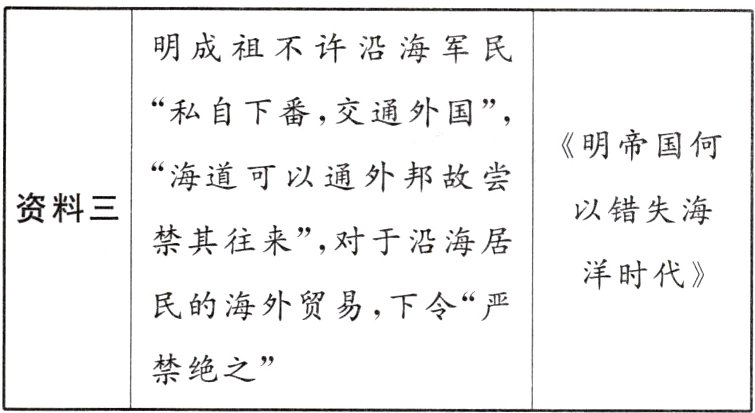 资料三
明成祖不许沿海军民
“私自下番,交通外国”,
“海道可以通外邦故尝
禁其往来”,对于沿海居
民的海外贸易,下令“严
禁绝之”
《明帝国何
以错失海
洋时代》